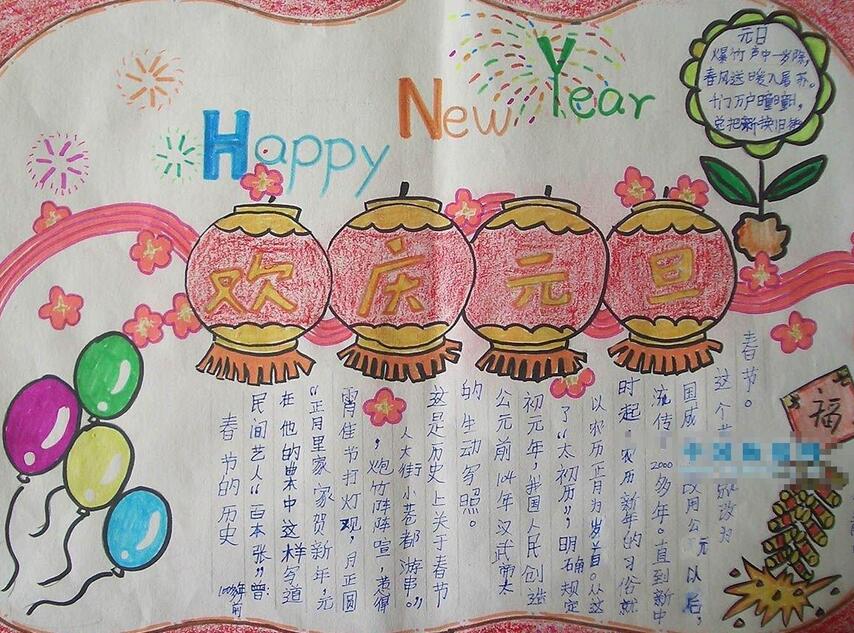 Happy New Year
元日
爆竹声中一岁除,
春风送暖入屠苏。
千门万户曈曈日,
总把新换旧
欢庆元旦
福
春节的历史
100多年前
民间艺人“百本张”曾
在他的曲本中这样写道
“正月里家家贺新年,元
宵佳节打灯观,月正圆
,炮竹阵阵喧,惹得
人人大街小巷都游串。”
这是历史上关于春节
的生动写照。
公元前104年汉武帝太
初元年,我国人民创造
了“太初历”,明确规定
以农历正月为岁首。从这
时起,农历新年的习俗就
流传2000多年。直到新中
国成 改用公元以后,
这个 改为
春节。